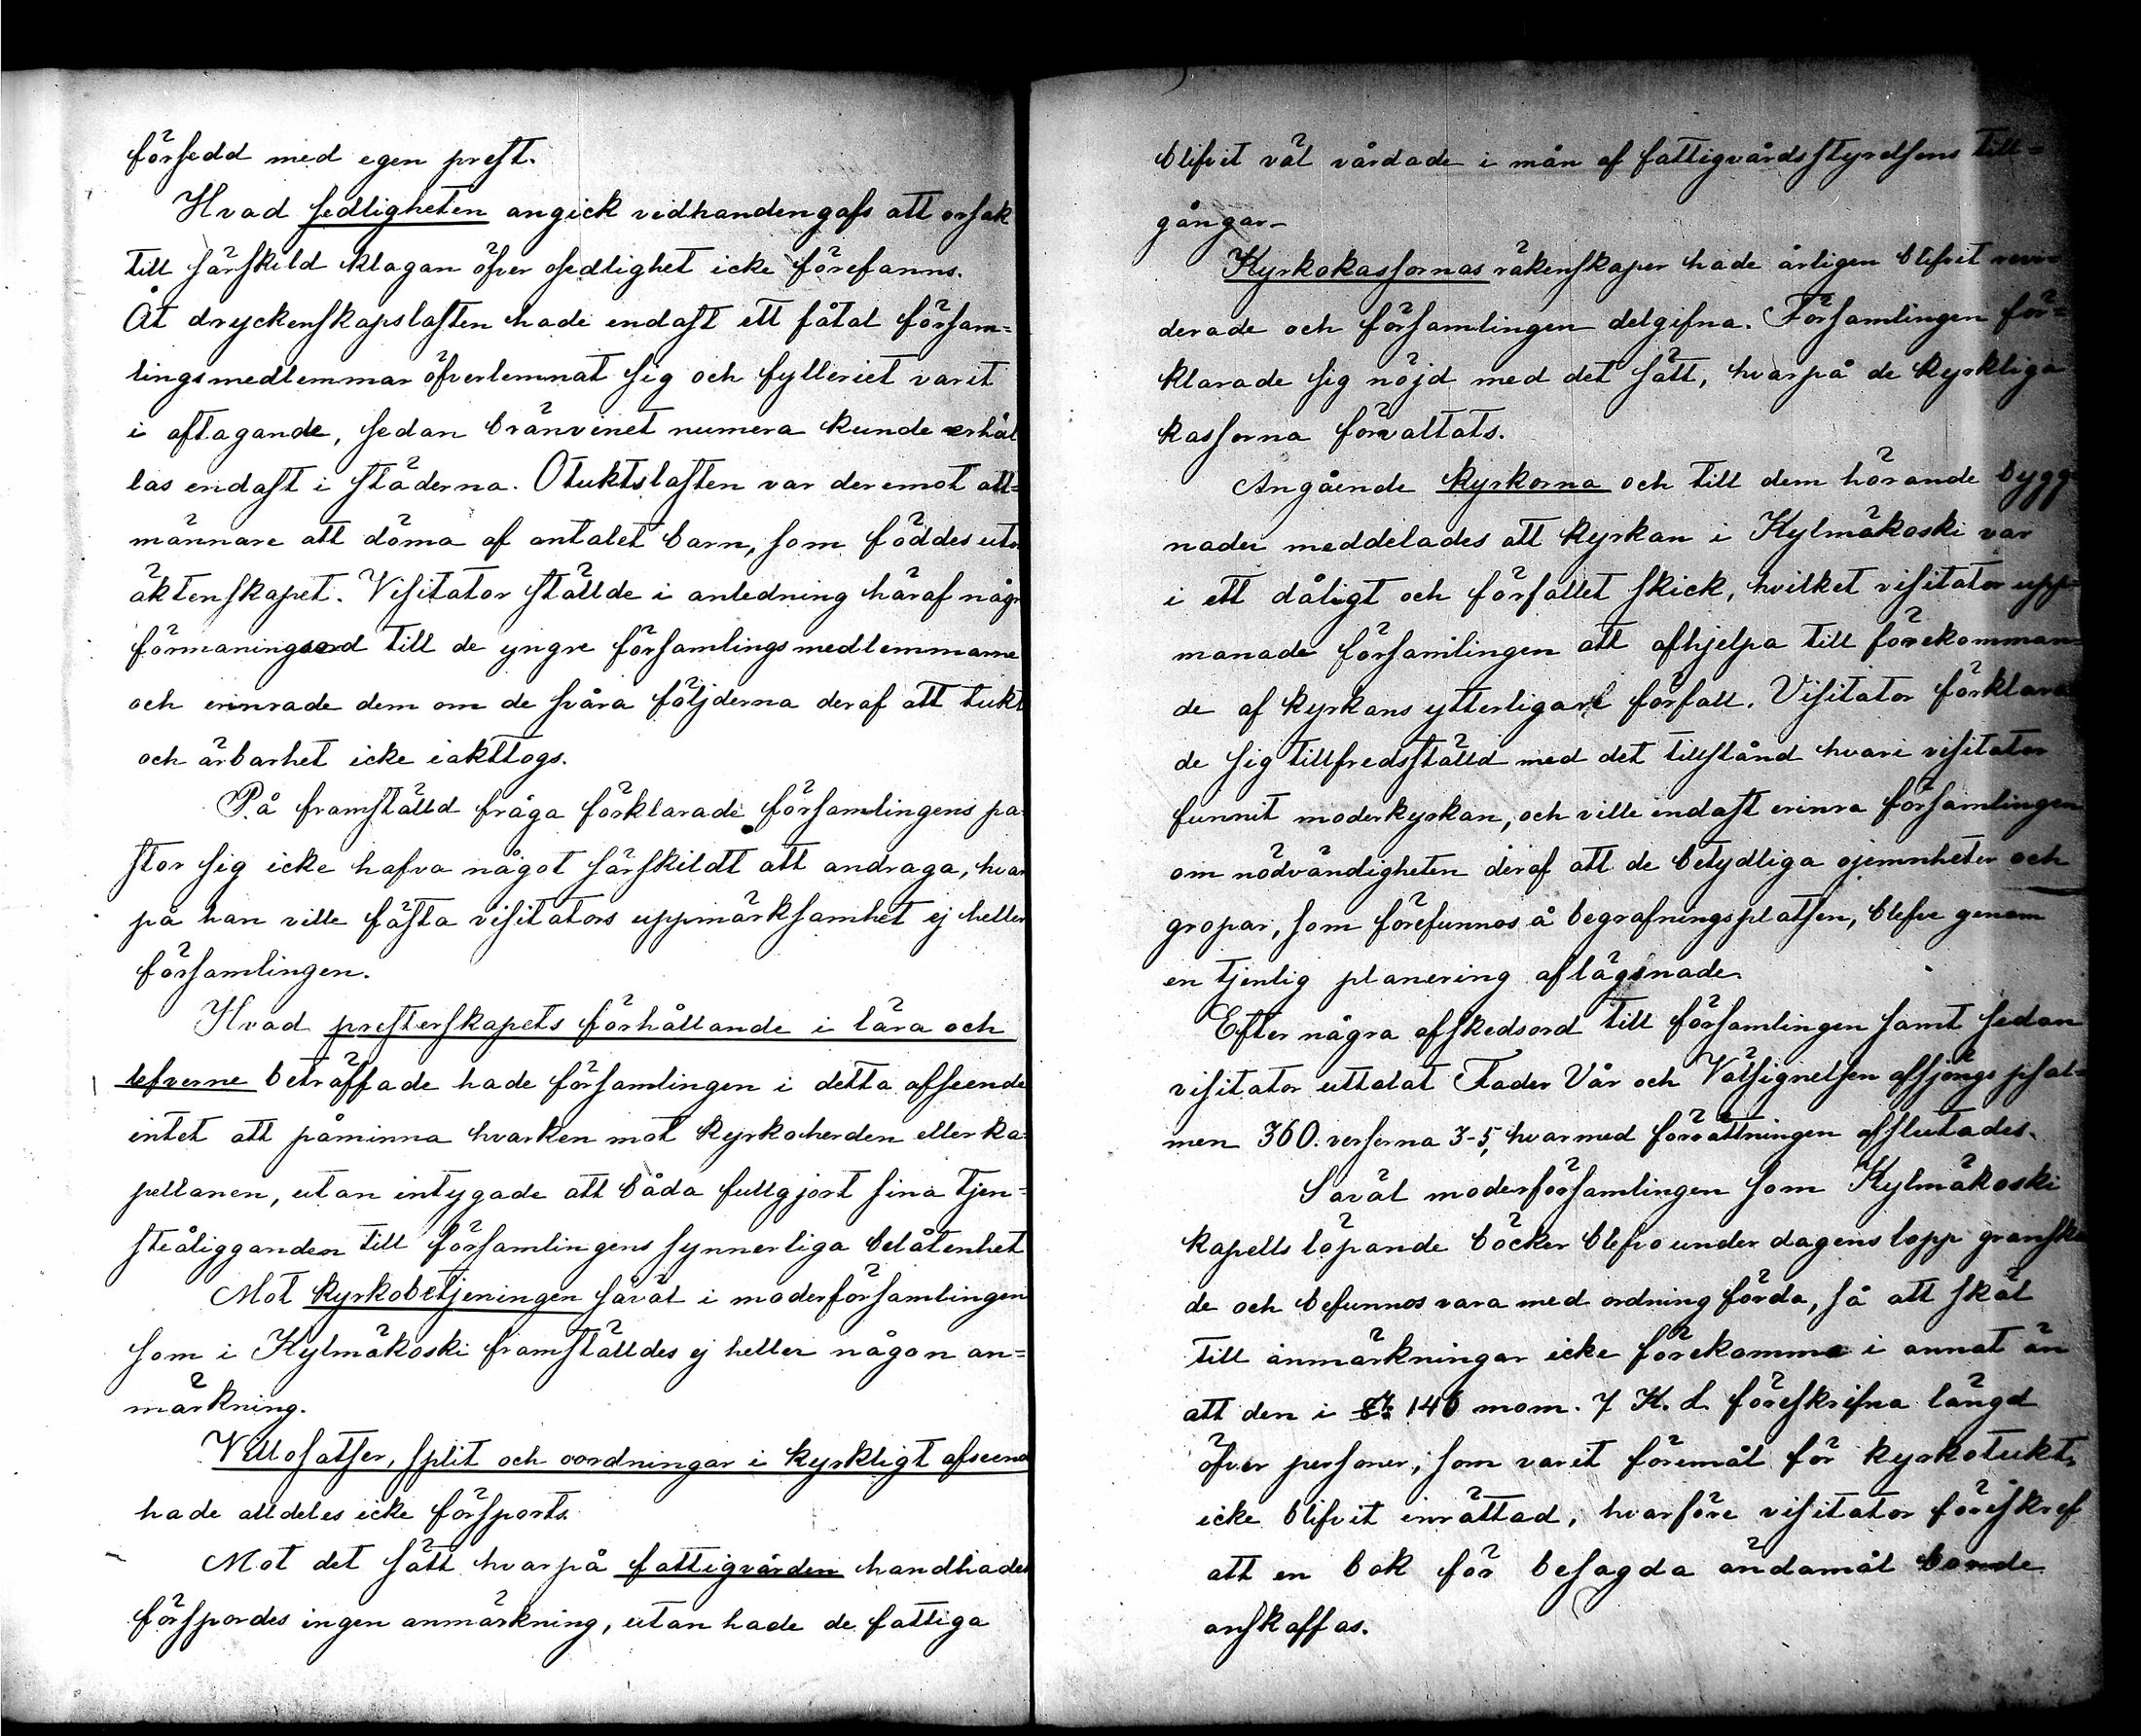 försedd med egen prest.
Hvad sedligheten angick vidhandengafs att orsak
till särskild klagan öfver osedlighet icke förefanns.
Åt dryckenskapslasten hade endast ett fåtal försam=
lingsmedlemmar öfverlemnat sig och fylleriet varit
i aftagande, sedan bränvinet numera kunde erhål
las endast i städerna. Otuktslasten var deremot all=
männare att döma af antalet barn, som föddes utom
äktenskapet. Visitator ställde i anledning häraf någr
förmaningsord till de yngre församlingsmedlemmarne
och erinrade dem om de svåra följderna deraf att tukt
och ärbarhet icke iakttogs.
På framställd fråga förklarade församlingens pa
stor sig icke hafva något särskildt att andraga, hvar
på han ville fästa visitators uppmärksamhet ej heller
församlingen.
Hvad presterskapets förhållande i lära och
lefverne beträffade hade församlingen i detta afseende
intet att påminna hvarken mot kyrkoherden eller ka=
pellanen, utan intygade att båda fullgjort sina tjen=
steåligganden till församlingens synnerliga belåtenhet
Mot kyrkobetjeningen såväl i moderförsamlingen
som i Kylmäkoski framställdes ej heller någon an=
märkning.
Villosatser, split och oordningar i kyrkligt afseende
hade alldeles icke försports.
Mot det sätt hvarpå fattigvården handhades
förspordes ingen anmärkning, utan hade de fattiga
blifvit väl vårdade i mån af fattigvårdsstyrelsens till=
gångar.
Kyrkokassornas räkenskaper hade årligen blifvit revi=
derade och församlingen delgifna. Församlingen för=
klarade sig nöjd med det sätt, hvarpå de kyrkliga
kassorna förvaltats.
Angående kyrkorna och till dem hörande bygg
nader meddelades att kyrkan i Kylmäkoski var
i ett dåligt och förfallet skick, hvilket visitator upp
manade församlingen att afhjelpa till förekomman=
de af kyrkans ytterligare förfall. Visitator förklara
de sig tillfredsställd med det tillstånd hvari visitator
funnit moderkyrkan, och ville endast erinra församlingen
om nödvändigheten deraf att de betydliga ojemnheter och
gropar, som förefunnos å begrafningsplatsen, blefve genom
en tjenlig planering aflägsnade.
Efter några afskedsord till församlingen samt sedan
visitator uttalat Fader Vår och Välsignelsen afsjöngs psal=
men 360. verserna 3-5, hvarmed förrättningen afslutades.
Såväl moderförsamlingen som Kylmäkoski
kapells löpande böcker blefvo under dagens lopp granska
de och befunnos vara med ordning förda, så att skäl
till anmärkningar icke förekomme i annat än
att den i 146 mom. 7 K. L. föreskrifna längd
öfver personer, som varit föremål för kyrkotukt,
icke blifvit inrättad, hvarföre visitator föreskref
att en bok för besagda ändamål borde
anskaffas.